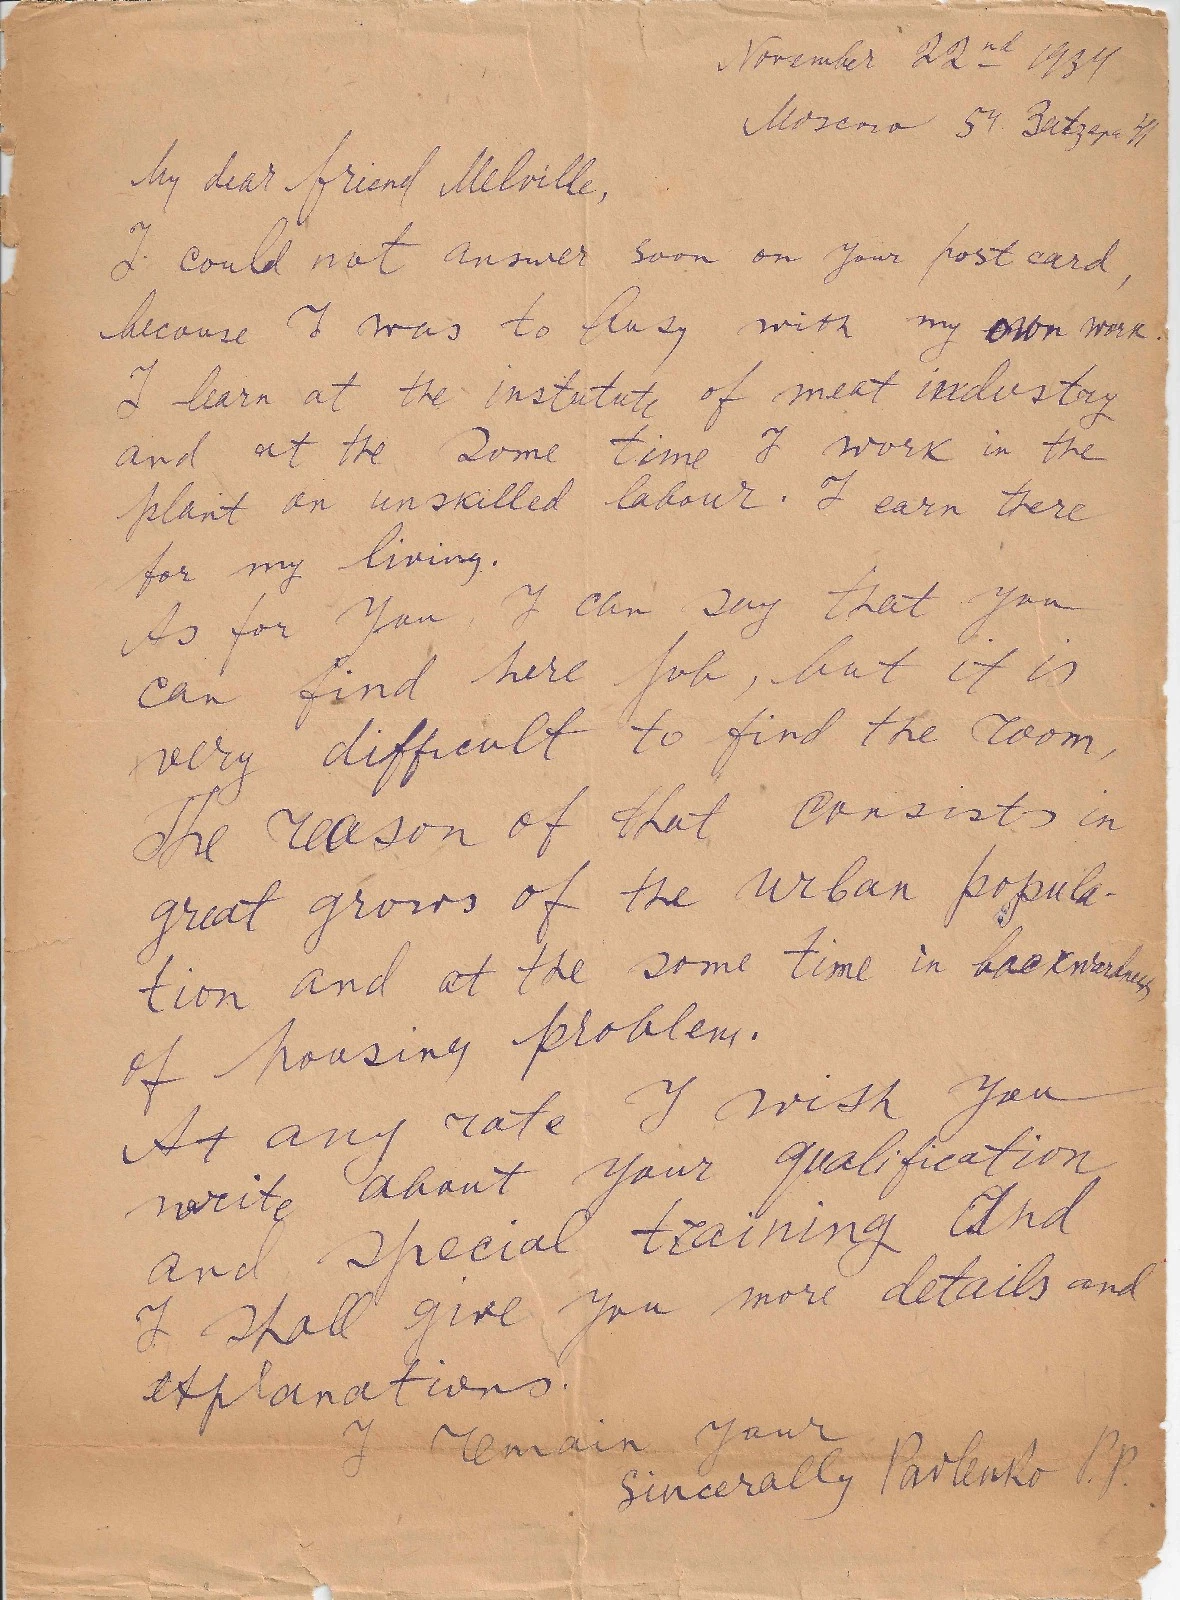 November 22nd 1934
Moscow 54
My dear friend Melville,
I could not answer soon on your post card,
because I was to busy with my own work.
I learn at the instutute of meat industry
and at the some time I work in the
plant on unskilled labour. I earn there
for my living.
As for You, I can say that you
can find here job, but it is
very difficult to find the room,
The reason of that consists in
great grows of the urban popula-
tion and at the some time in backwardness
of housing problem.
At any rate I wish you
write about your qualification
and special training And
I shall give you more details and
explanations.
I remain your
sincerally Pavlenko P.P.